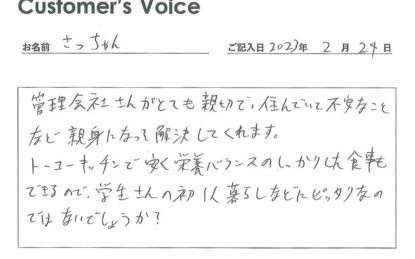 Customer's Voice
お名前 さっちゃん ご記入日 2023年 2月 24日
管理会社さんがとても親切で、住んでいて不安なこと
など親身になって解決してくれます。
トーコーキッチンで安く栄養バランスのしっかりした食事も
できるので、学生さんの初1人暮らしなどにピッタリなの
ではないでしょうか?